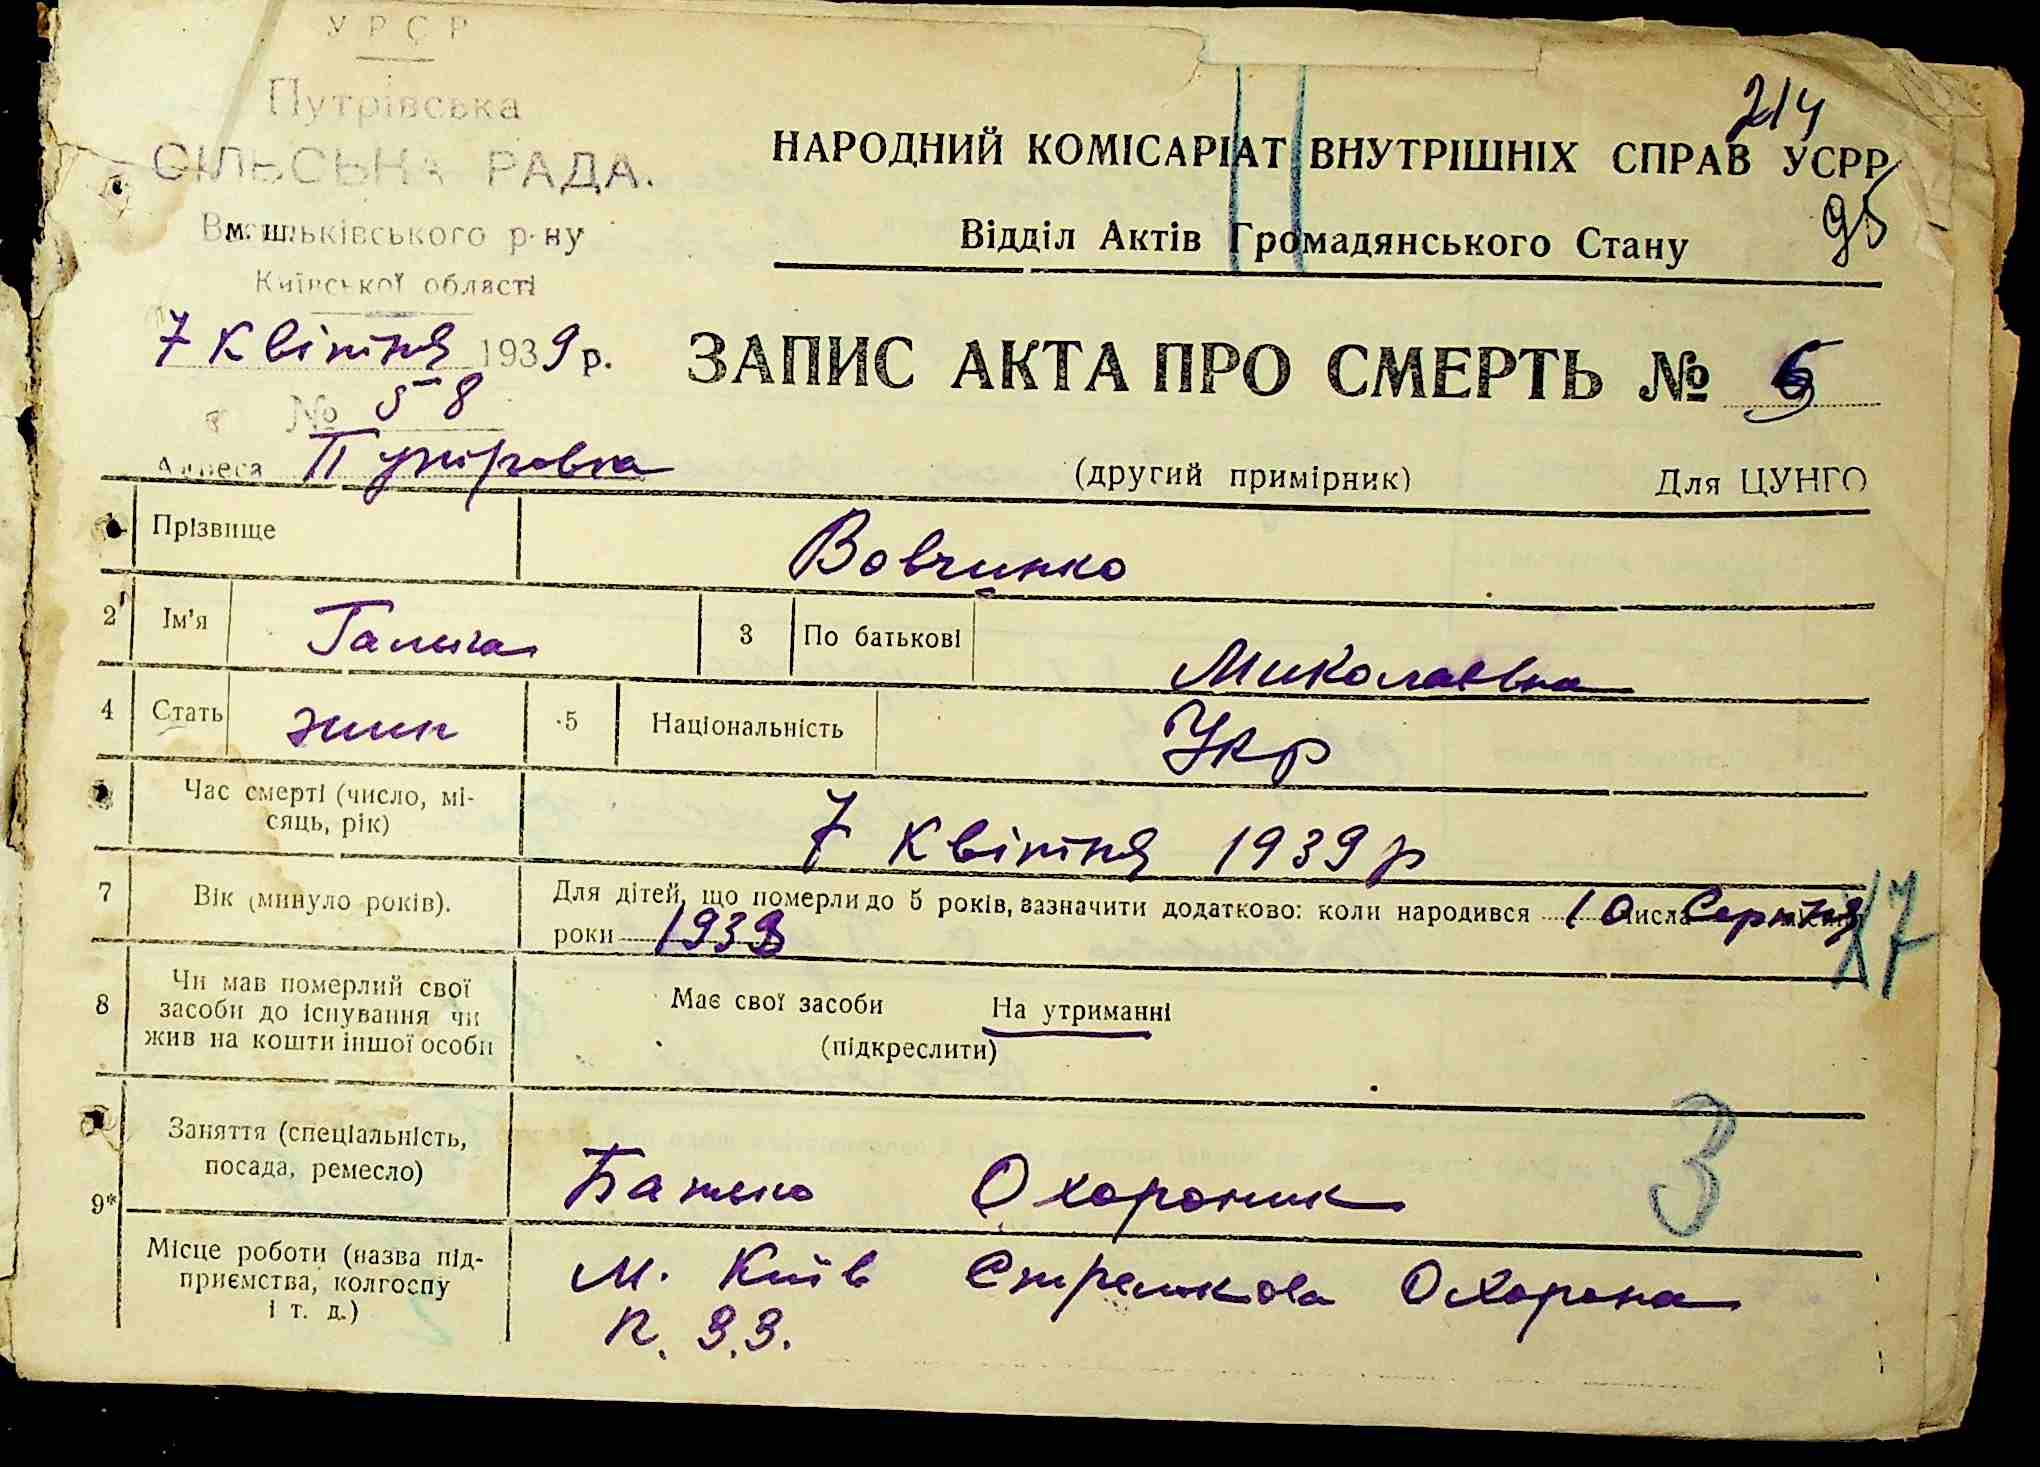 УРСР
Путрівська
СІЛЬСЬКА РАДА.
Васильківського р-ну
Київської області
7 Квітня 1939 р.
№ 58
Адреса Путровка
214
95
НАРОДНИЙ КОМІСАРІАТ ВНУТРІШНІХ СПРАВ УСРР
Відділ Актів Громадянського Стану
ЗАПИС АКТА ПРО СМЕРТЬ №
(другий примірник) Для ЦУНГО
Прізвище Вовчинко
2 Ім'я Галина 3 По батькові Миколаєвна
4 Стать жин 5 Національність Укр
Час смерті (число, мі-
сяць, рік) 7 Квітня 1939 р
7 Вік (минуло років). Для дітей, що померли до 5 років, зазначити додатково: коли народився 10 числа Серпня місяця
роки 1938
17
8 Чи мав померлий свої
засоби до існування чи
жив на кошти іншої особи
Має свої засоби На утриманні
(підкреслити)
3
9* Заняття (спеціальність,
посада, ремесло) Батько Охороник
Місце роботи (назва під-
приємства, колгоспу
і т. д.)
М. Київ Стрелкова Охорона
п. 33.